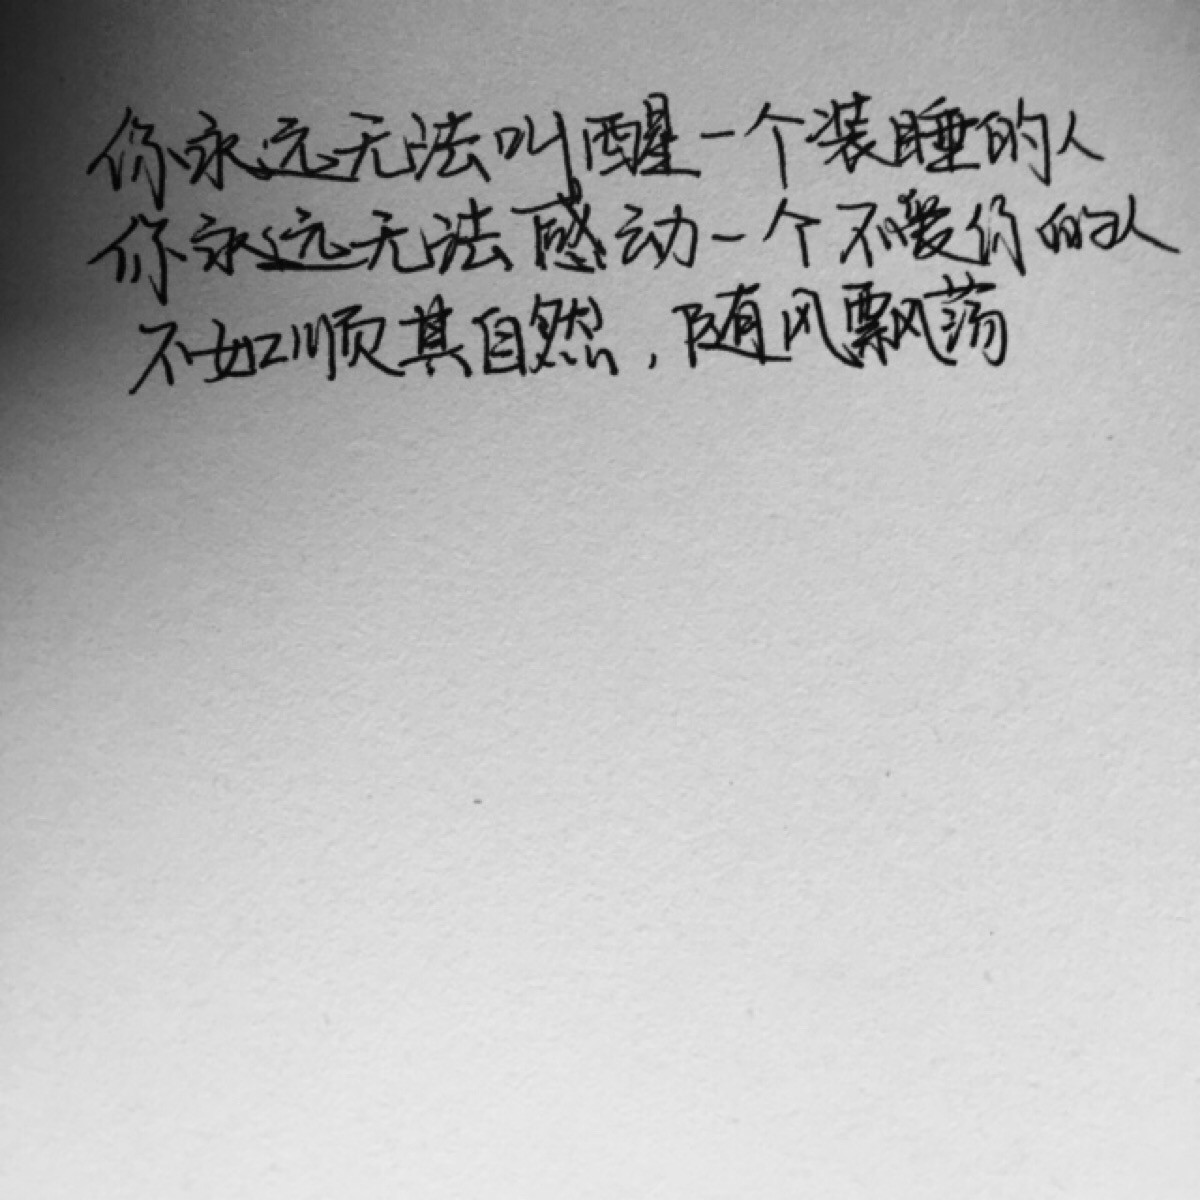 你永远无法叫醒一个装睡的人
你永远无法感动一个不爱你的人
不如顺其自然，随风飘荡